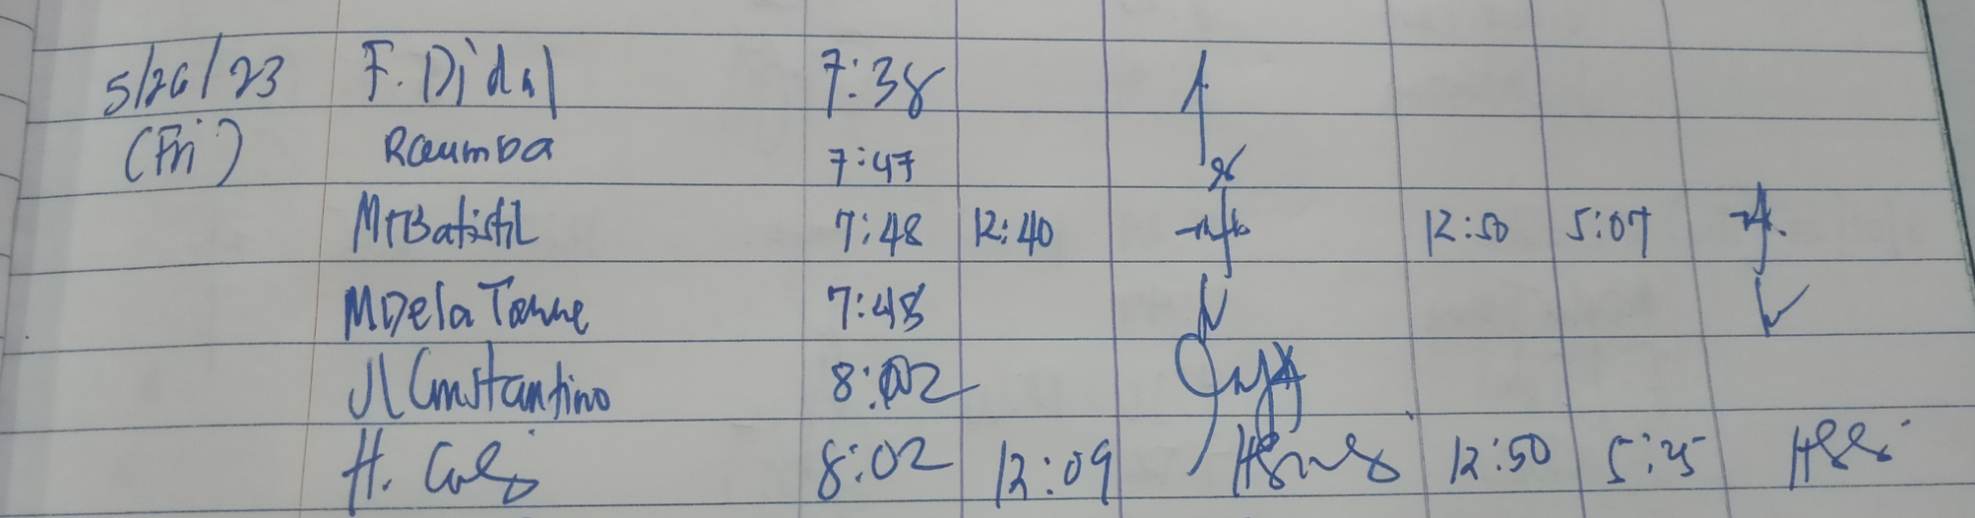 5/26/23 F. Didal 7:38
(Fri) 7:47
MTBatistil 7:48 12:40 12:50 5:07
MDela Torre 7:48
Jl Constantino 8:02
H. 8:02 12:09 12:50 5:25